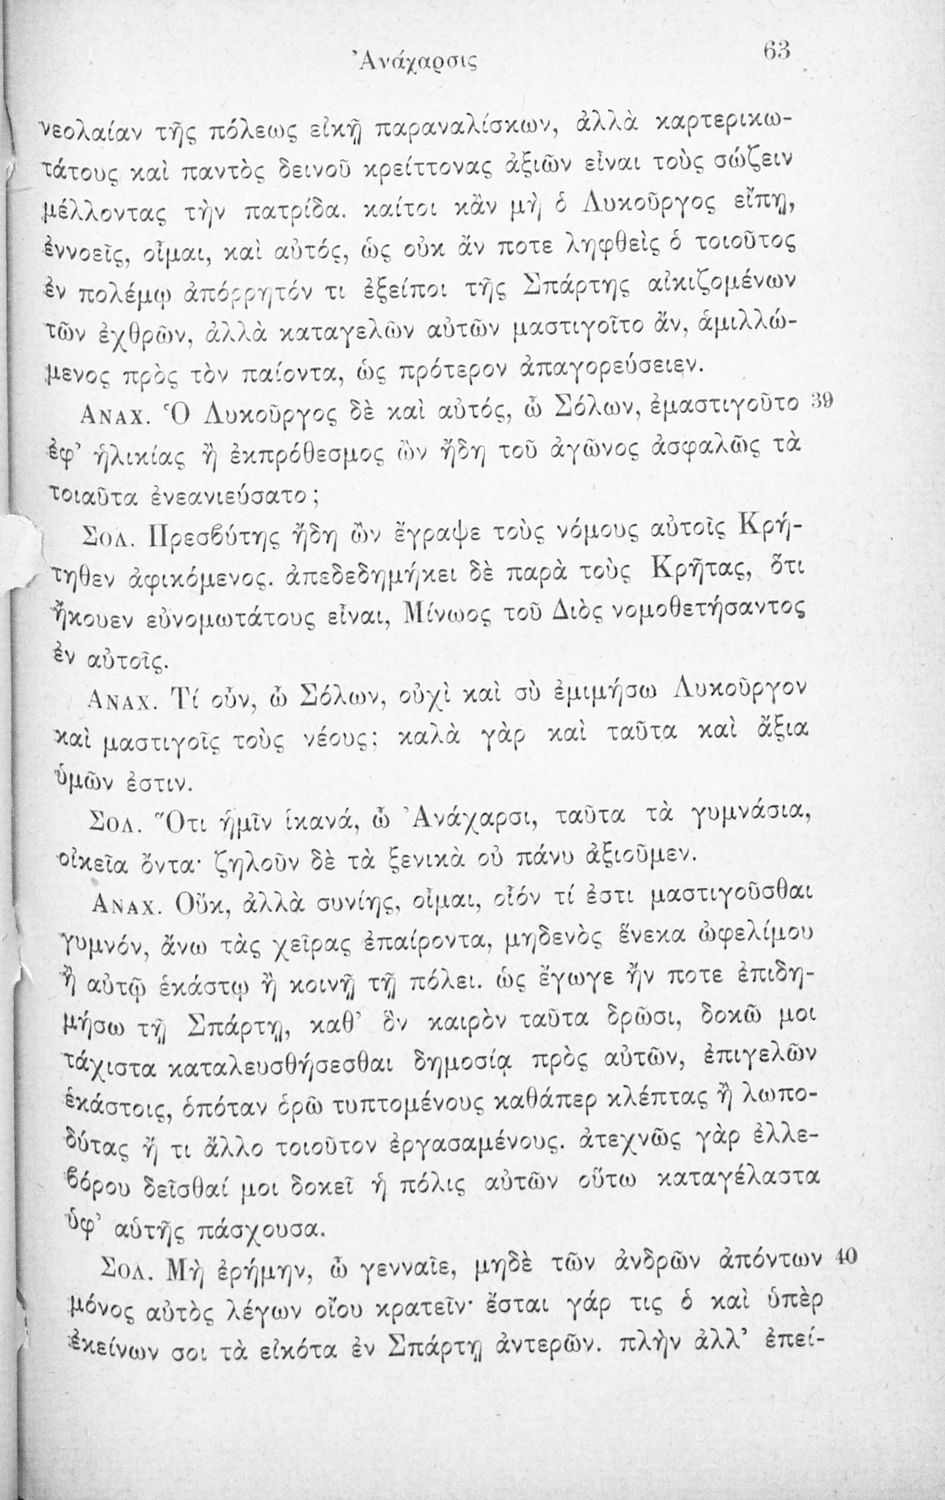 Ἀνάχαρσις 63
νεολαίαν τῆς πόλεως εἰκῇ παραναλίσκων, ἀλλὰ καρτερικω-
τάτους καὶ παντὸς δεινοῦ κρείττονας ἀξιῶν εἶναι τοὺς σώζειν
μέλλοντας τὴν πατρίδα. καίτοι κἂν μὴ ὁ Λυκοῦργος εἴπῃ,
ἐννοεῖς, οἶμαι, καὶ αὐτός, ὡς οὐκ ἄν ποτε ληφθεὶς ὁ τοιοῦτος
ἐν πολέμῳ ἀπόρρητόν τι ἐξείποι τῆς Σπάρτης αἰκιζομένων
τῶν ἐχθρῶν, ἀλλὰ καταγελῶν αὐτῶν μαστιγοῖτο ἄν, ἁμιλλώ-
μενος πρὸς τὸν παίοντα, ὡς πρότερον ἀπαγορεύσειεν.
ΑΝΑΧ. Ὁ Λυκοῦργος δὲ καὶ αὐτός, ὦ Σόλων, ἐμαστιγοῦτο 39
ἐφ' ἡλικίας ἢ ἐκπρόθεσμος ὢν ἤδη τοῦ ἀγῶνος ἀσφαλῶς τὰ
τοιαῦτα ἐνεανιεύσατο;
ΣΟΛ. Πρεσβύτης ἤδη ὢν ἔγραψε τοὺς νόμους αὐτοῖς Κρή-
τηθεν ἀφικόμενος. ἀπεδεδημήκει δὲ παρὰ τοὺς Κρῆτας, ὅτι
ἤκουεν εὐνομωτάτους εἶναι, Μίνωος τοῦ Διὸς νομοθετήσαντος
ἐν αὐτοῖς.
ΑΝΑΧ. Τί οὖν, ὦ Σόλων, οὐχὶ καὶ σὺ ἐμιμήσω Λυκοῦργον
καὶ μαστιγοῖς τοὺς νέους; καλὰ γὰρ καὶ ταῦτα καὶ ἄξια
ὑμῶν ἐστιν.
ΣΟΛ. Ὅτι ἡμῖν ἱκανά, ὦ Ἀνάχαρσι, ταῦτα τὰ γυμνάσια,
οἰκεῖα ὄντα· ζηλοῦν δὲ τὰ ξενικὰ οὐ πάνυ ἀξιοῦμεν.
ΑΝΑΧ. Οὔκ, ἀλλὰ συνίης, οἶμαι, οἷόν τί ἐστι μαστιγοῦσθαι
γυμνόν, ἄνω τὰς χεῖρας ἐπαίροντα, μηδενὸς ἕνεκα ὠφελίμου
ἢ αὐτῷ ἑκάστῳ ἢ κοινῇ τῇ πόλει. ὡς ἔγωγε ἤν ποτε ἐπιδη-
μήσω τῇ Σπάρτῃ, καθ' ὃν καιρὸν ταῦτα δρῶσι, δοκῶ μοι
τάχιστα καταλευσθήσεσθαι δημοσίᾳ πρὸς αὐτῶν, ἐπιγελῶν
ἑκάστοις, ὁπόταν ὁρῶ τυπτομένους καθάπερ κλέπτας ἢ λωπο-
δύτας ἤ τι ἄλλο τοιοῦτον ἐργασαμένους. ἀτεχνῶς γὰρ ἐλλε-
βόρου δεῖσθαί μοι δοκεῖ ἡ πόλις αὐτῶν οὕτω καταγέλαστα
ὑφ' αὑτῆς πάσχουσα.
ΣΟΛ. Μὴ ἐρήμην, ὦ γενναῖε, μηδὲ τῶν ἀνδρῶν ἀπόντων 40
μόνος αὐτὸς λέγων οἴου κρατεῖν· ἔσται γάρ τις ὁ καὶ ὑπὲρ
ἐκείνων σοι τὰ εἰκότα ἐν Σπάρτῃ ἀντερῶν. πλὴν ἀλλ' ἐπεί-